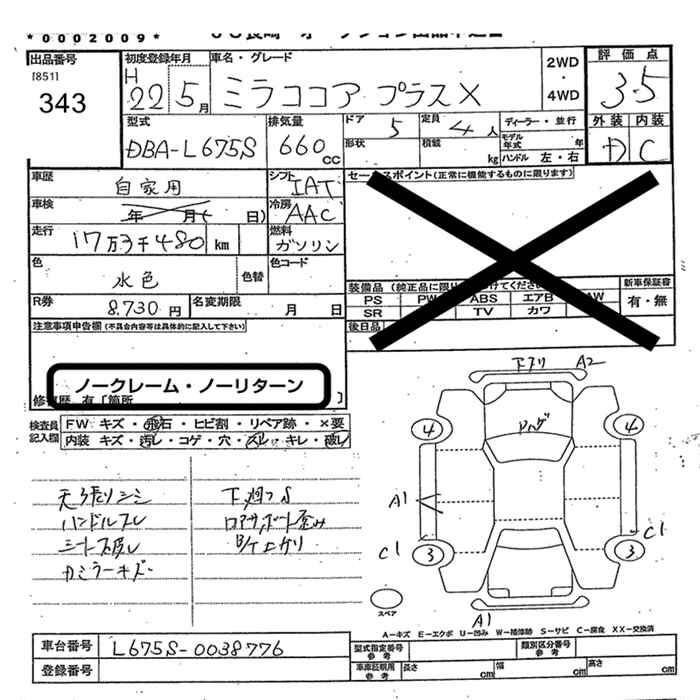 *0002009*
出品番号
[851]
343
初度登録年月
H 22 5月
車名・グレード
ミラココア プラスX
2WD
・
4WD
評価点
3.5
型式
DBA-L675S
排気量
660 cc
ドア 5
定員 4人
形状
積載 kg
ディーラー・並行
モデル年式 年
ハンドル 左・右
外装 内装
D C
車歴
自家用
シフト
IAT
車検
年 月( 日)
冷房
AAC
走行
17万3千480 km
燃料
ガソリン
色
水色
色替
色コード
R券
8,730円
名変期限
月 日
セールスポイント(正常に機能するものに限ります)
装備品
PS PW ABS エアB AW
SR TV カワ
新車保証書
有・無
後日品
注意事項申告欄(不具合内容等は具体的に記入して下さい)
ノークレーム・ノーリターン
修復歴 有〔箇所 〕
検査員記入欄
FW キズ・飛石・ヒビ割・リペア跡・×要
内装 キズ・汚レ・コゲ・穴・スレ・キレ・破レ
天張りシミ
ハンドルスレ
シート破レ
カミラーキズ
下廻りS
ロアサポート歪み
下スリ A2
4 4
A1
C1 3 3 C1
スペア
A1
A-キズ E-エクボ U-凹み W-補修跡 S-サビ C-腐食 XX-交換済
車台番号
L675S-0038776
登録番号
型式指定番号
参考
類別区分番号
参考
車庫証明用
参考
長さ cm
幅 cm
高さ cm